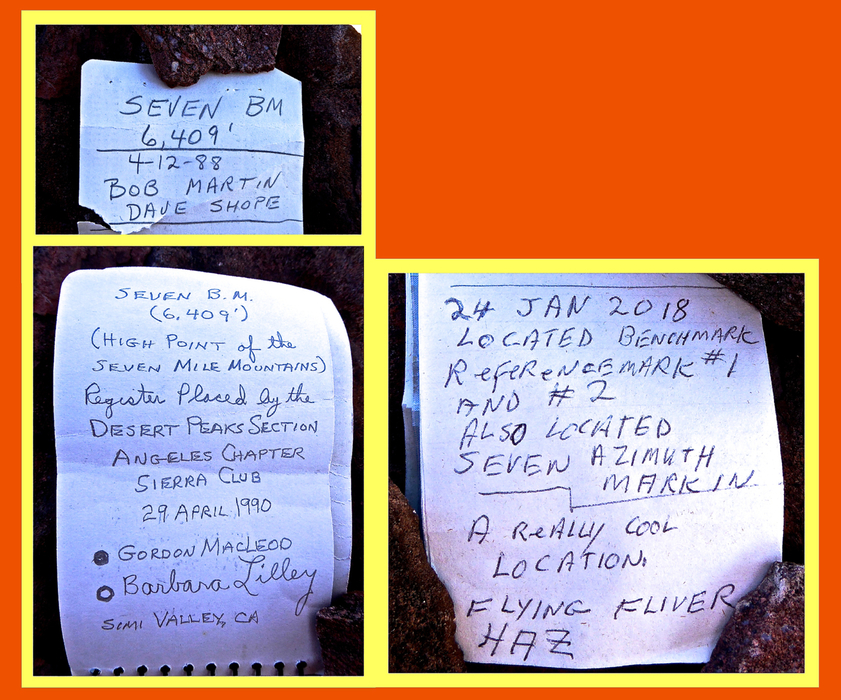 SEVEN BM
6,409'
4-12-88
BOB MARTIN
DAVE SHOPE
SEVEN B.M.
(6,409')
(HIGH POINT of the
SEVEN MILE MOUNTAINS)
Register Placed by the
DESERT PEAKS SECTION
ANGELES CHAPTER
SIERRA CLUB
29 APRIL 1990
GORDON MACLEOD
Barbara Lilley
SIMI VALLEY, CA
24 JAN 2018
LOCATED BENCHMARK
REFERENCEMARK #1
AND #2
ALSO LOCATED
SEVEN AZIMUTH
MARK IN
A REALLY COOL
LOCATION.
FLYING FLIVER
HAZ